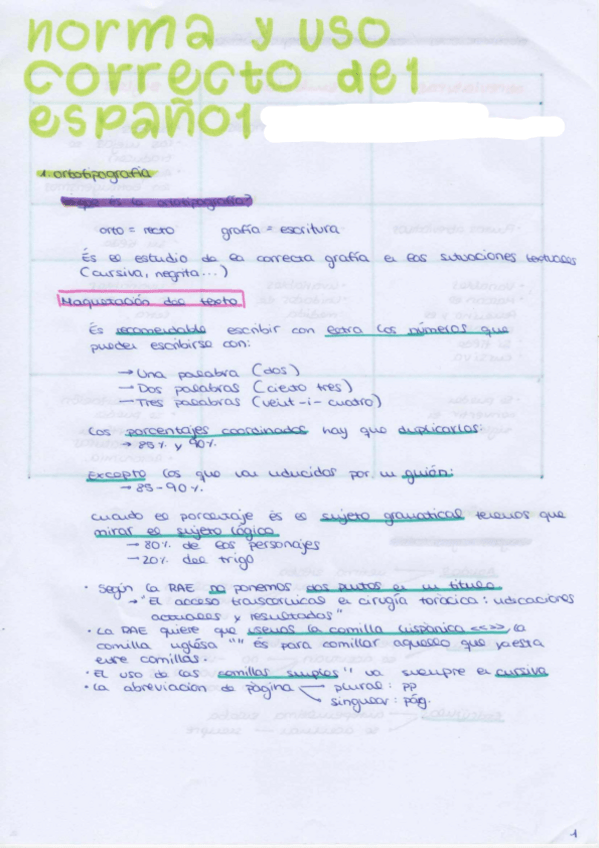 norma y uso
correcto del
español
1. ortotipografía
¿Qué és la ortotipografía?
orto = recto grafía = escritura
És el estudio de la correcta grafía en las situaciones textuales
(cursiva, negrita...)
Maquetación del texto
És recomendable escribir con letra los números que
pueden escribirse con:
→ Una palabra (dos)
→ Dos palabras (ciento tres)
→ Tres palabras (veint-i-cuatro)
Los porcentajes coordinados hay que duplicarlos:
→ 85% y 90%.
Excepto los que van unidos por un guión:
→ 85-90%.
cuando el porcentaje és el sujeto gramatical tenemos que
mirar el sujeto lógico
→ 80% de los personajes
→ 20% del trigo
· Según la RAE no ponemos dos puntos en un título
→ "El acceso transcervical en cirugía toràcica: indicaciones
actuales y resultados"
· La RAE quiere que usemos la comilla hispànica <<>>, la
comilla inglésa "" és para comillar aquello que ya esta
entre comillas.
· El uso de las comillas simples '' va siempre en cursiva
· La abreviación de pàgina plural: pp
singular: pág.
1